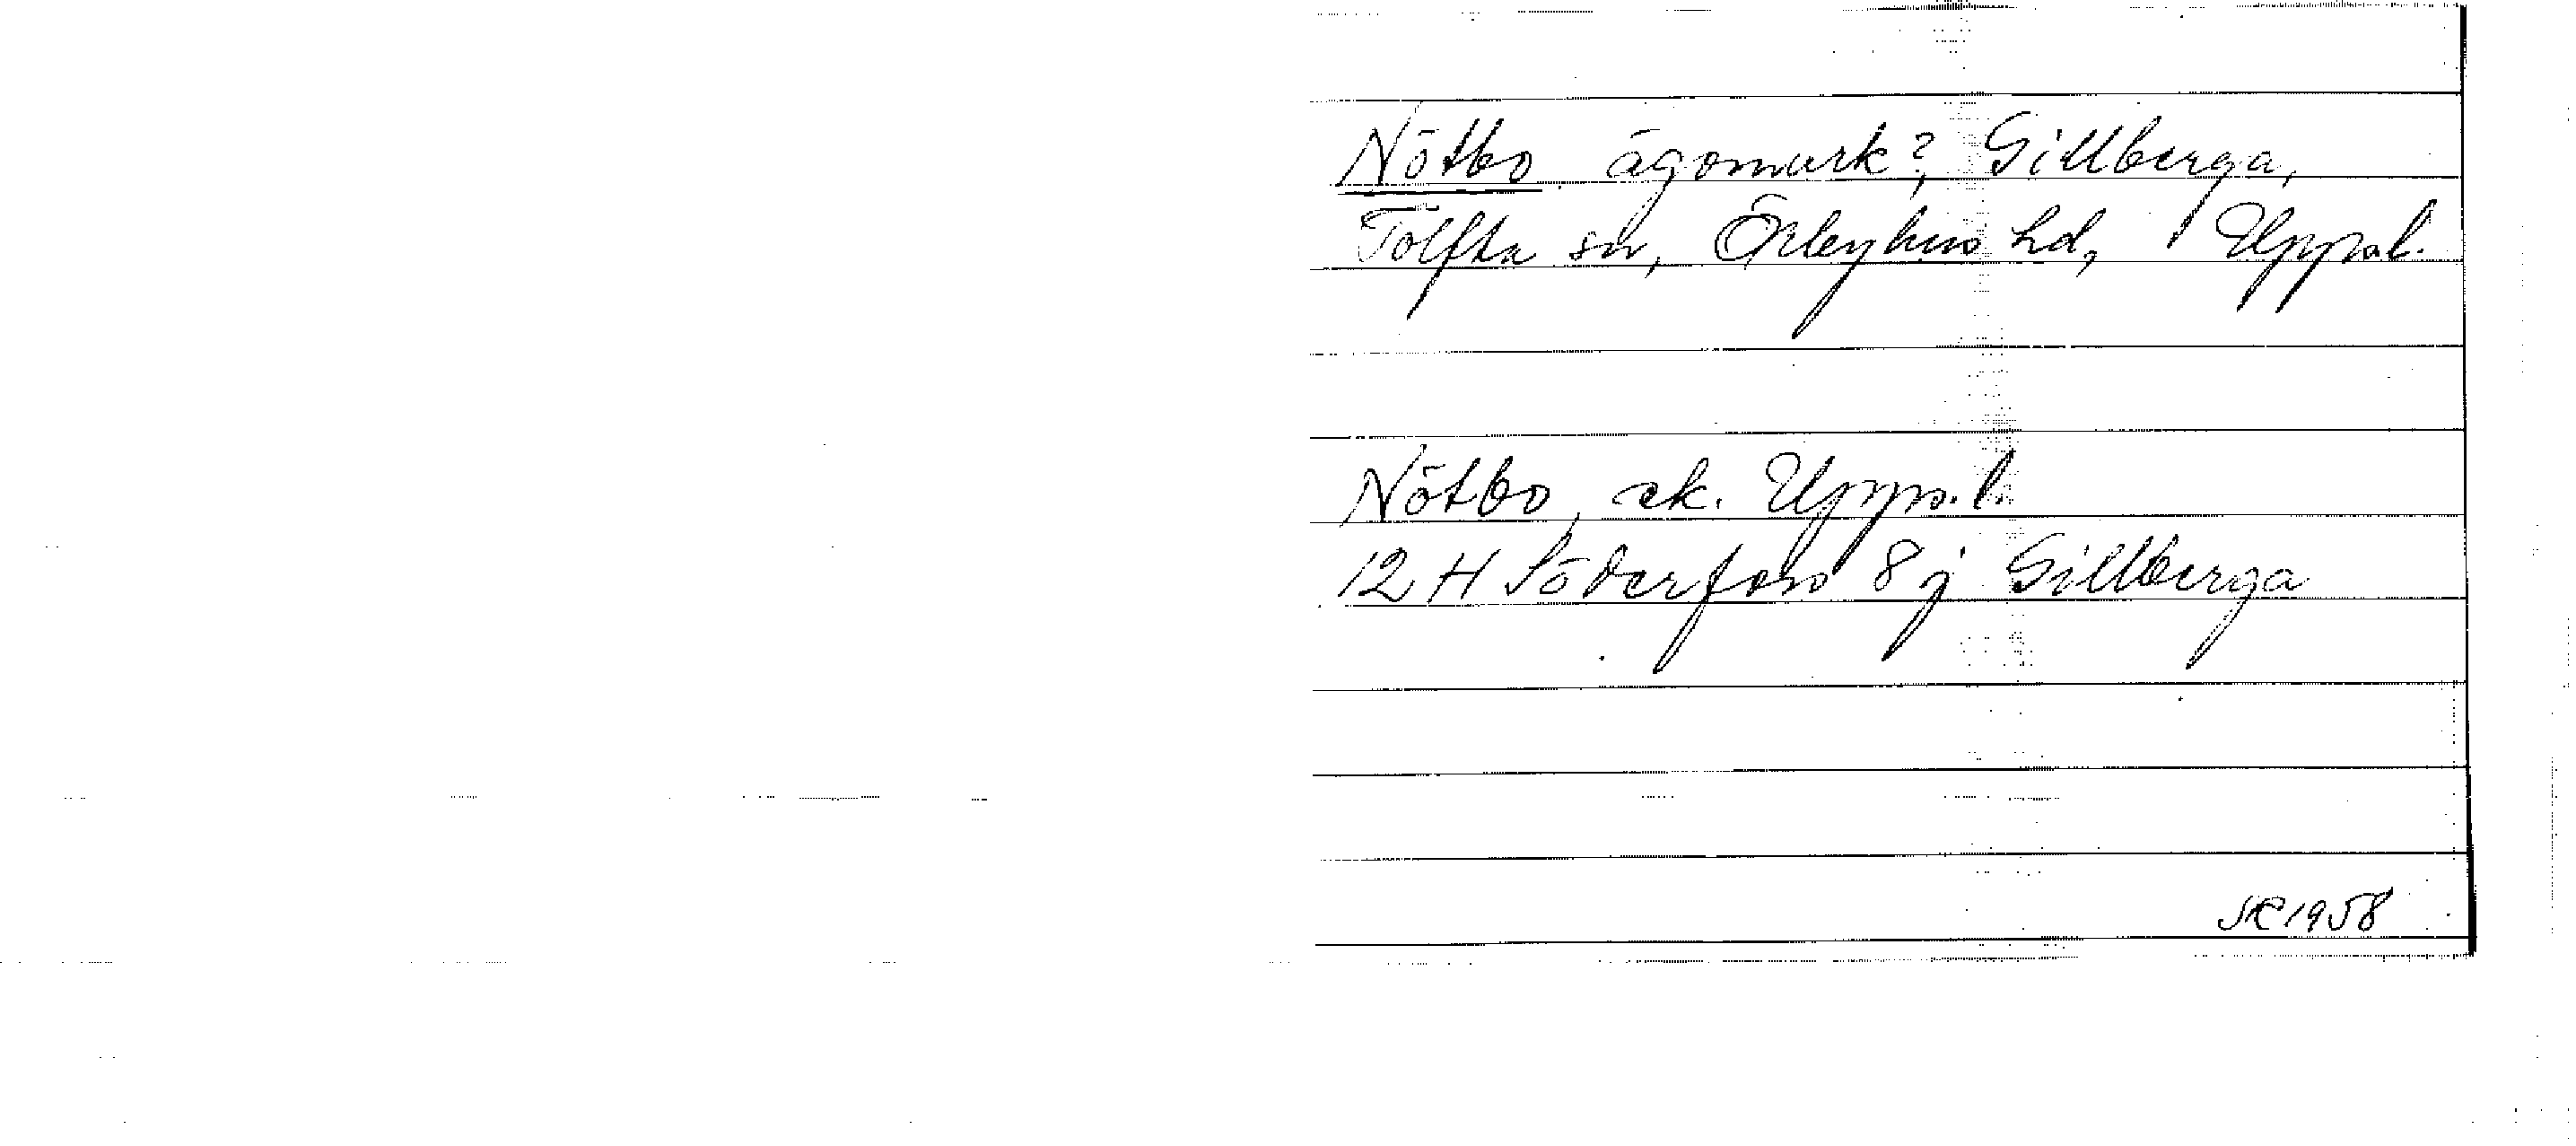 Nötbo ägomark?, Gillberga,
Tolfta sn, Örbyhus hd, Uppsal.
Nötbo, ek. Upps. l.
12 H Söderfors 8 j Gillberga
1958